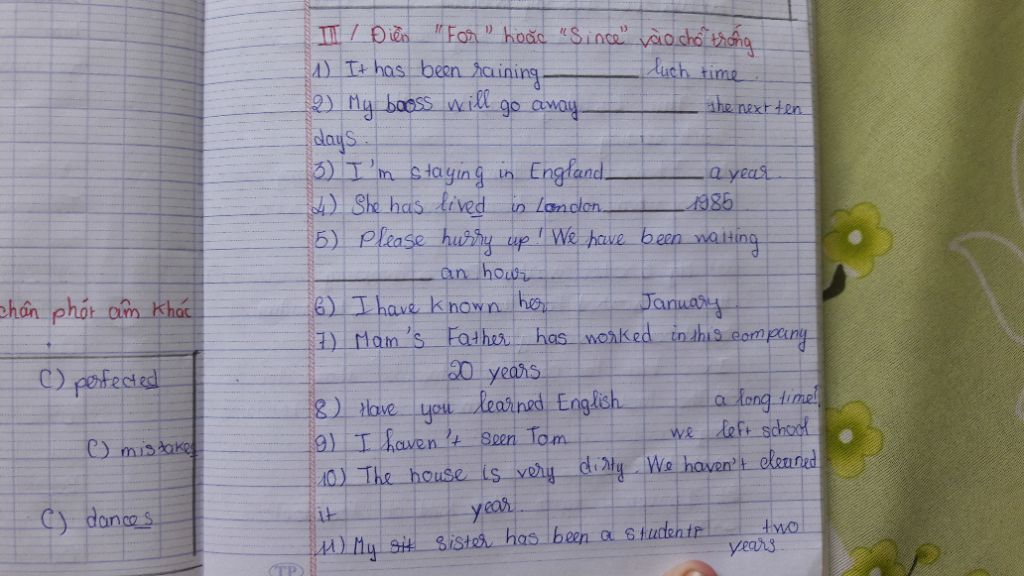 III / Điền "For" hoặc "Since" vào chỗ trống
1) It has been raining ________ luch time.
2) My boss will go away ________ the next ten
days.
3) I'm staying in England ________ a year.
4) She has lived in London ________ 1985
5) Please hurry up! We have been waiting
________ an hour.
6) I have known her January.
7) Mam's Father has worked in this company
20 years
8) Have you learned English a long time?
9) I haven't seen Tom we left school
10) The house is very dirty. We haven't cleaned
it year.
11) My sister has been a student two
years.
chân phát âm khác
C) perfected
C) mistakes
C) dances
TP